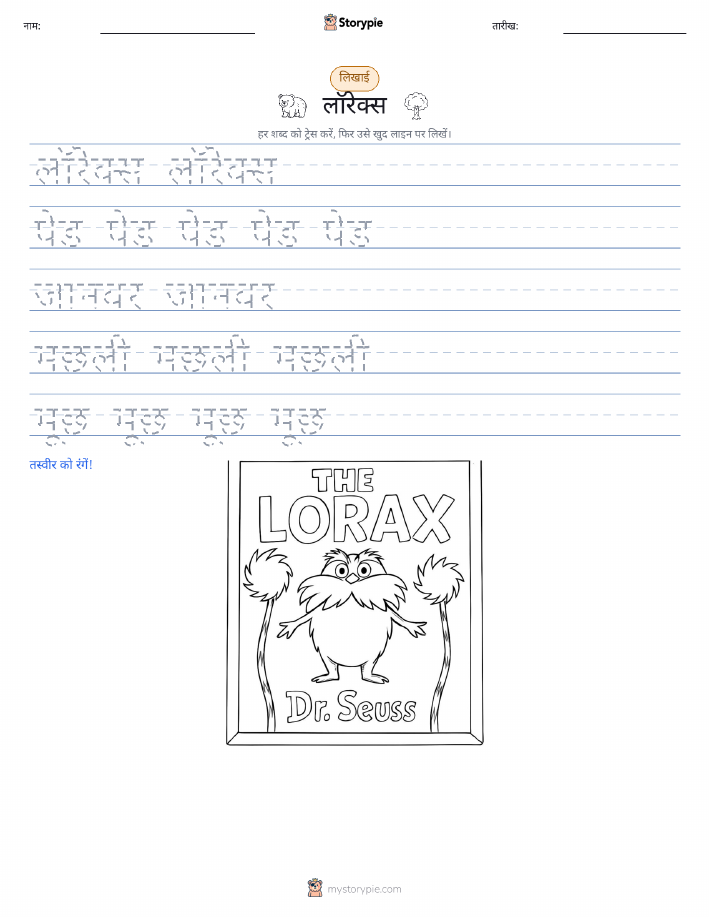 नाम:
Storypie
तारीख:
लिखाई
लॉरेक्स
हर शब्द को ट्रेस करें, फिर उसे खुद लाइन पर लिखें।
लॉरेक्स लॉरेक्स
पेड पेड पेड पेड पेड
जानवर जानवर
मछली मछली मछली
मूछ मूछ मूछ मूछ
तस्वीर को रंगें!
THE
LORAX
Dr. Seuss
mystorypie.com